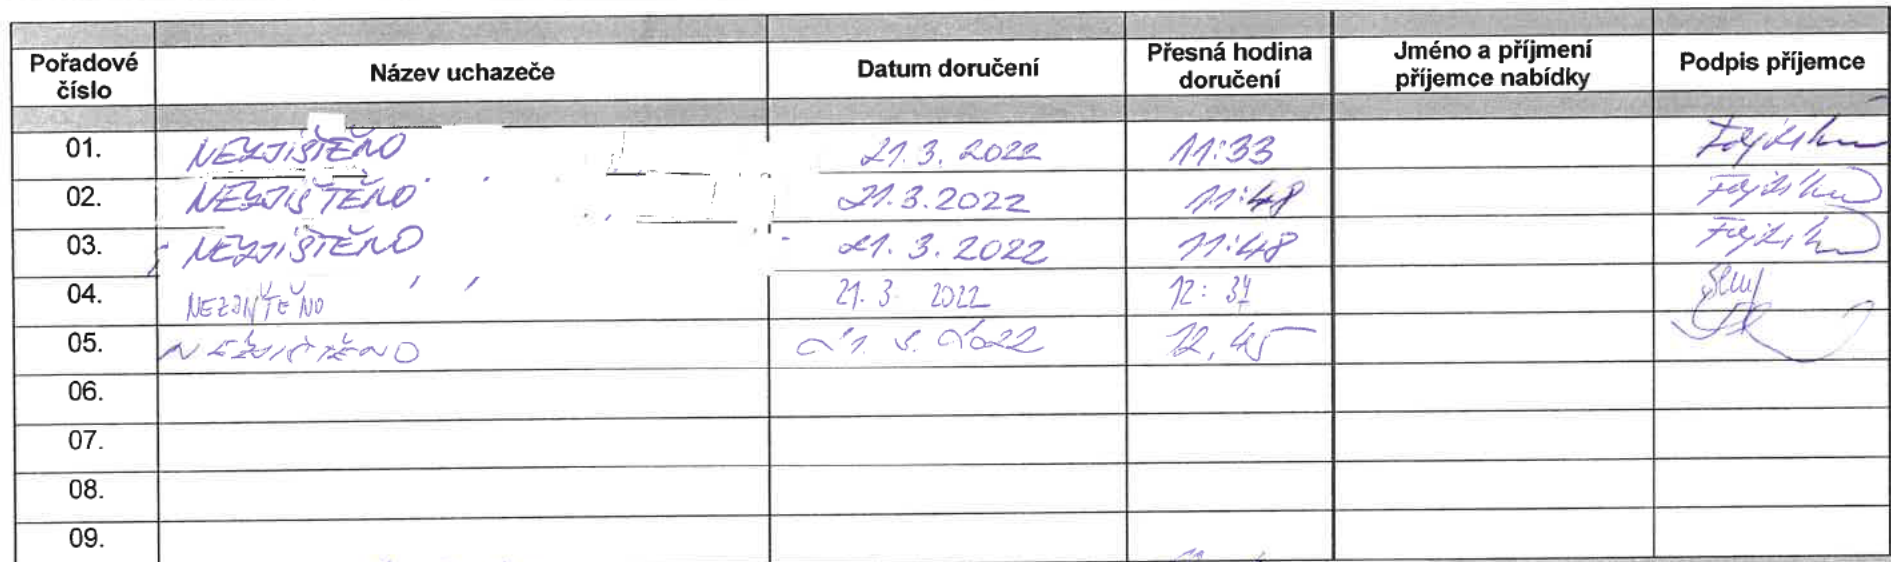 Pořadové číslo Název uchazeče Datum doručení Přesná hodina doručení Jméno a příjmení příjemce nabídky Podpis příjemce
01. NEZJIŠTĚNO 21.3.2022 11:33
02. NEZJIŠTĚNO 21.3.2022 11:48
03. NEZJIŠTĚNO 21.3.2022 11:48
04. NEZJIŠTĚNO 21.3. 2022 12:34
05. NEZJIŠTĚNO 21.3.2022 12,45
06.
07.
08.
09.